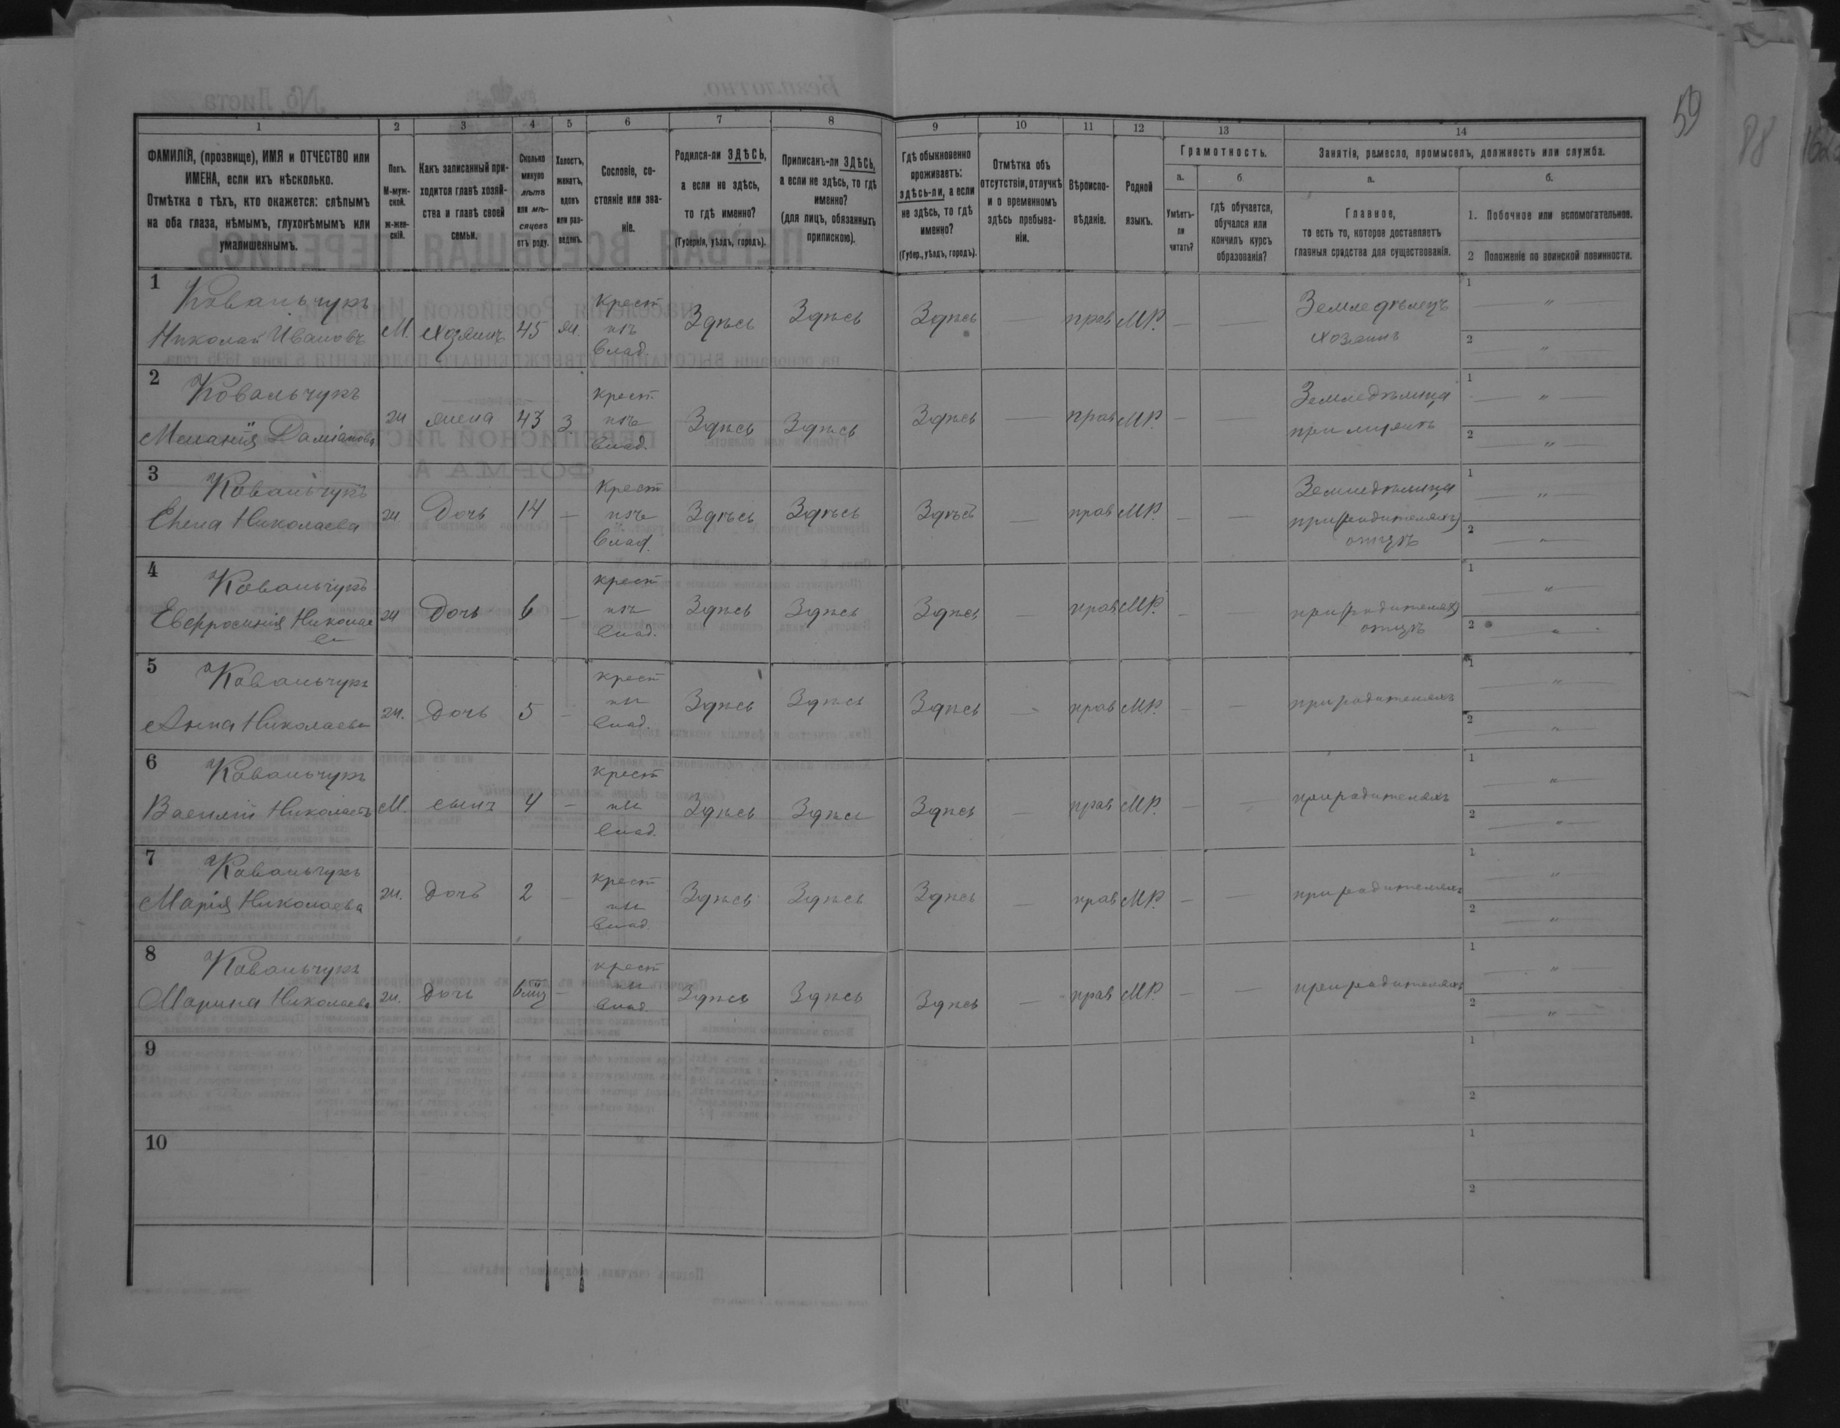 59
88
1 2 3 4 5 6 7 8 9 10 11 12 13 14
ФАМИЛІЯ, (прозвище), ИМЯ и ОТЧЕСТВО или
ИМЕНА, если ихъ нѣсколько.
Отмѣтка о тѣхъ, кто окажется: слѣпымъ
на оба глаза, нѣмымъ, глухонѣмымъ или
умалишеннымъ.
Полъ.
М-муж-
ской.
ж-жен-
скій.
Какъ записанный при-
ходится главѣ хозяй-
ства и главѣ своей
семьи.
Сколько
минуло
лѣтъ
или мѣ-
сяцевъ
отъ роду.
Холостъ,
женатъ,
вдовъ
или раз-
веденъ.
Сословіе, со-
стояніе или зва-
ніе.
Родился-ли ЗДѢСЬ,
а если не здѣсь,
то гдѣ именно?
(Губернія, уѣздъ, городъ).
Приписанъ-ли ЗДѢСЬ,
а если не здѣсь, то гдѣ
именно?
(для лицъ, обязанныхъ
припискою).
Гдѣ обыкновенно
проживаетъ:
здѣсь-ли, а если
не здѣсь, то гдѣ
именно?
(Губер., уѣздъ, городъ).
Отмѣтка объ
отсутствіи, отлучкѣ
и о временномъ
здѣсь пребыва-
ніи.
Вѣроиспо-
вѣданіе.
Родной
языкъ.
Грамотность.
а.
Умѣетъ-
ли
читать?
б
гдѣ обучается,
обучался или
кончилъ курсъ
образованія?
Занятія, ремесло, промыселъ, должность или служба.
а.
Главное,
то есть то, которое доставляетъ
главныя средства для существованія.
б.
1. Побочное или вспомогательное.
2 Положеніе по воинской повинности.
1
Ковальчукъ
Николай Ивановъ
М. хозяинъ 45 ж.
Крест
изъ
влад
Здѣсь Здѣсь Здѣсь — прав МР. — —
Земледѣлецъ
хозяинъ
1 — " —
2 — " —
2
Ковальчукъ
Меланія Даміанова
ж жена 43 з
крест
изъ
влад.
Здѣсь Здѣсь Здѣсь — прав МР. — —
Земледѣлица
при мужѣ
1 — " —
2 — " —
3
Ковальчукъ
Елена Николаева
ж Дочь 14 —
крест
изъ
влад.
Здѣсь Здѣсь Здѣсь — прав МР. — —
Земледѣлица
при (родителяхъ)
отцѣ
1 — " —
2 — " —
4
Ковальчукъ
Евфросинія Николае
ва
ж Дочь 6 —
крест
изъ
влад.
Здѣсь Здѣсь Здѣсь — прав МР. — —
при (родителях)
отцѣ
1 — " —
2 — " —
5
Ковальчукъ
Анна Николаева
ж. Дочь 5 —
крест
изъ
влад.
Здѣсь Здѣсь Здѣсь — прав МР. — —
при родителяхъ
1 — " —
2 — " —
6
Ковальчукъ
Василій Николаевъ
М сынъ 4 —
крест
изъ
влад.
Здѣсь Здѣсь Здѣсь — прав МР. — —
при родителяхъ
1 — " —
2 — " —
7
Ковальчукъ
Марія Николаева
ж. Дочь 2 —
крест
изъ
влад
Здѣсь Здѣсь Здѣсь — прав МР. — —
при родителяхъ
1 — " —
2 — " —
8
Ковальчукъ
Марина Николаева
ж. Дочь 6 мц —
крест
изъ
влад.
Здѣсь Здѣсь Здѣсь — прав МР. — —
при родителяхъ
1 — " —
2 — " —
9
1
2
10
1
2